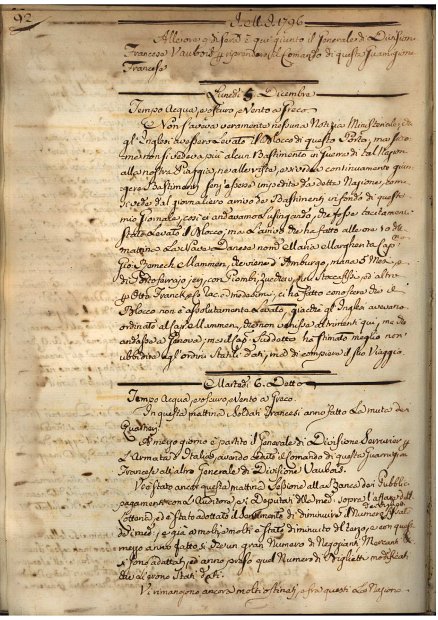 92
A. M. D. 1796
Alle ore di sera è qui giunto il Generale di Division
Francese Vaubois p riprendere il Comando di questa Guarnigione
Francese
Lunedì 5. Dicembre
Tempo Acqua, e oscuro, e Vento a Greco
Non si aveva veramente nessuna Notizia Ministeriale, che
gl'Inglesi avessero Levato il Blocco di questo Porto, ma sicco
me non si vedeva più alcun Bastimento in Guerra di tal Nazione
alla nostra Piaggia, ne alle viste, e si vedeva continuamente giun
gere Bastimenti senz'essere impediti da detta Nazione, come
si vede dal giornaliero arrivo de Bastimenti in fondo di questo
mio giornale, così ci andavamo lusingando, che fosse tacitamente
stato Levato il Blocco, ma L'arrivo che ha fatto alle ore 10 della
mattina La Nave Danese nom. Maria Margherita Cap
Gio: Boneck Mammen, che viene d'Amburgo, mana 5 Mesi, e
di Portoferrajo jeri, con Piombi, Zucchero, Stocafissi, ed altro
p detto Franck, e Sac. e medesimi, ci ha fatto conoscere che il
Blocco non è assolutamente Levato, giacchè gl'Inglesi avevano
ordinato al Cap. Mammen, che non venisse altrimenti qui, ma che
andasse a Genova; ma il Cap. Suddetto ha stimato meglio non
ubbidire agl'ordini statili dati, ma di compiere il suo Viaggio.
Martedì 6. Detto
Tempo Acqua, e oscuro, e Vento a Greco.
In questa mattina i Soldati Francesi anno fatto La muta dei
Quartieri
A mezzo giorno è partito il Generale di Divisione Serrurier p
L'Armata d'Italia, avendo ceduto il comando di questa Guarnigione
Francese all'altro Generale di Divisione Vaubois.
Vi è stato anco questa mattina Sessione alla Banca dei Pubblici
pagamenti con l'Auditore, e i Deputati della med. sopra l'affare dell
Lottona, ed è stato adottato il Sentimento di diminuire il Numero
di med., e già a molti, e molti è stato diminuito del terzo, e con questo
mezzo anno fatto sì che un gran Numero di Negozianti, Mercanti &
si sono adattati, ed anno preso quel Numero di Viglietti modificati
che li erono stati dati.
Vi rimangono ancora molti ostinati, e fra questi La Nazione